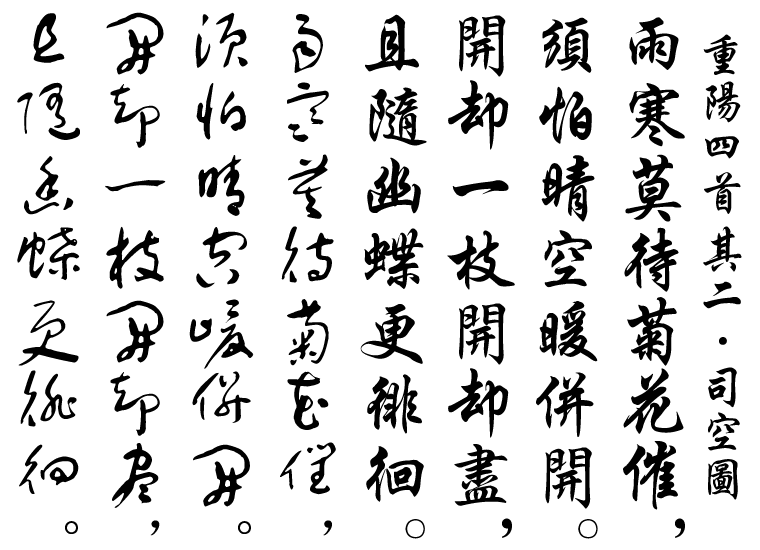 重陽四首其二・司空圖
雨寒莫待菊花催，
須怕晴空暖併開。
開却一枝開却盡，
且隨幽蝶更徘徊。
雨寒莫待菊花催，
須怕晴空暖併開。
開却一枝開却盡，
且隨幽蝶更徘徊。